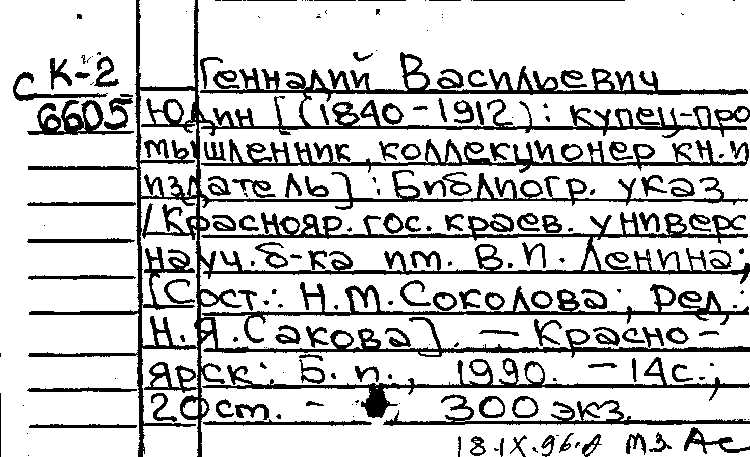 с К-2
6605
Геннадий Васильевич
Юдин [(1840-1912): купец-про
мышленник, коллекционер кн. и
издатель] : Библиогр. указ.
/Краснояр. гос. краев. универс
науч. б-ка им. В.И. Ленина;
[Сост.: Н.М. Соколова; Ред.:
Н.Я. Сакова]. — Красно-
ярск: Б. и., 1990. - 14с.;
20 ст. - 300 экз.
18.IX.96.